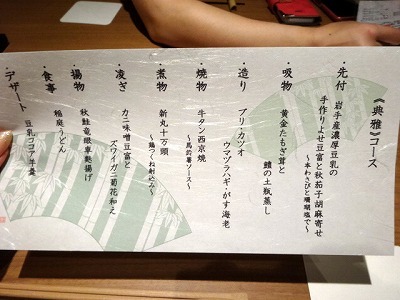 《典雅》コース
・先付
岩手産濃厚豆乳の
手作りよせ豆富と秋茄子胡麻寄せ
～本わさびと珊瑚塩で～
・吸物
黄金たもぎ茸と
鱧の土瓶蒸し
・造り
ブリ・カツオ
ウマヅラハギ・がす海老
・焼物
牛タン西京焼
～馬鈴薯ソース～
・煮物
新丸十万頭
～鶏つくね射込み～
・凌ぎ
カニ味噌豆富と
ズワイガニ菊花和え
・揚物
秋鮭竜眼車麩揚げ
・食事
稲庭うどん
・デザート
豆乳ココア羊羹